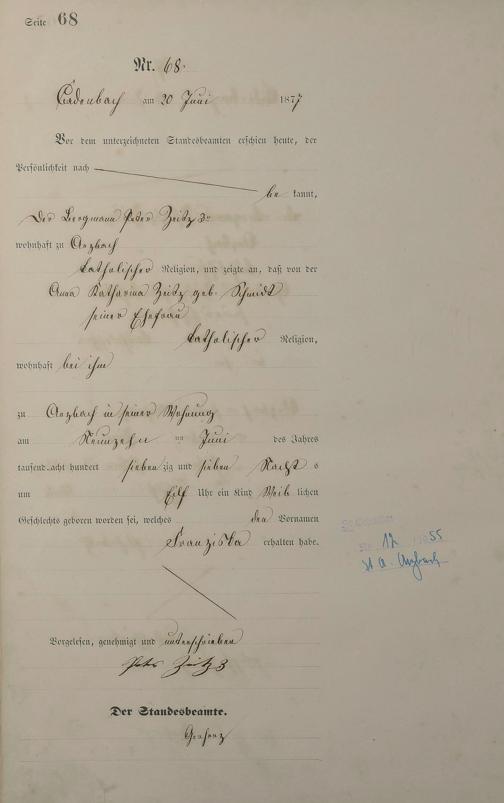 Seite 68
Nr. 68.
Cadenbach am 20 Juni 1877
Vor dem unterzeichneten Standesbeamten erschien heute, der
Persönlichkeit nach
be kannt,
Der Bergmann Peter Zeitz 3r
wohnhaft zu Arzbach
katholischer Religion, und zeigte an, daß von der
Anna Katharina Zeitz geb. Schmidt
seiner Ehefrau
katholischer Religion,
wohnhaft bei ihm
zu Arzbach in seiner Wohnung
am Neunzehn ten Juni des Jahres
tausend acht hundert sieben zig und sieben Nacht s
um Eilf Uhr ein Kind Weib lichen
Geschlechts geboren worden sei, welches den Vornamen
Franziska erhalten habe.
Vorgelesen, genehmigt und unterschrieben
Peter Zeitz 3
Der Standesbeamte.
12 55
St A. Arzbach